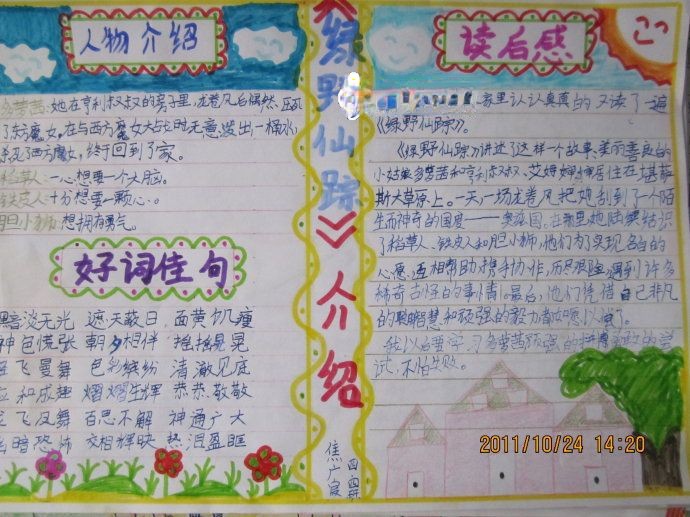 人物介绍
多萝茜:她在亨利叔叔的房子里,龙卷风后偶然压死
了东方魔女,在与西方魔女大战时无意泼出一桶水
杀死了西方魔女,终于回到了家。
稻草人:一心想要一个大脑。
铁皮人:十分想要一颗心。
胆小狮:想拥有勇气。
好词佳句
黯淡无光 遮天蔽日 面黄肌瘦
神色慌张 朝夕相伴 摇摇晃晃
飞曼舞 色彩缤纷 清澈见底
应和成趣 熠熠生辉 恭恭敬敬
龙飞凤舞 百思不解 神通广大
幽暗恐怖 交相辉映 热泪盈眶
《绿野仙踪》介绍
四四班
焦广宸
读后感
家里认认真真的又读了一遍
《绿野仙踪》。
《绿野仙踪》讲述了这样一个故事:美丽善良的
小姑娘多萝茜和亨利叔叔、艾姆婶婶居住在堪萨
斯大草原上。一天一场龙卷风把她刮到了一个陌
生而神奇的国度——奥兹国。在那里她陆续结识
了稻草人、铁皮人和胆小狮,他们为了实现各自的
心愿,互相帮助携手协作,历尽艰险,遇到许多
稀奇古怪的事情。最后,他们凭借自己非凡
的聪明智慧和顽强的毅力都如愿以偿了。
我以后要学习多萝茜顽强的拼搏 敢的尝
试,不怕失败。
2011/10/24 14:20